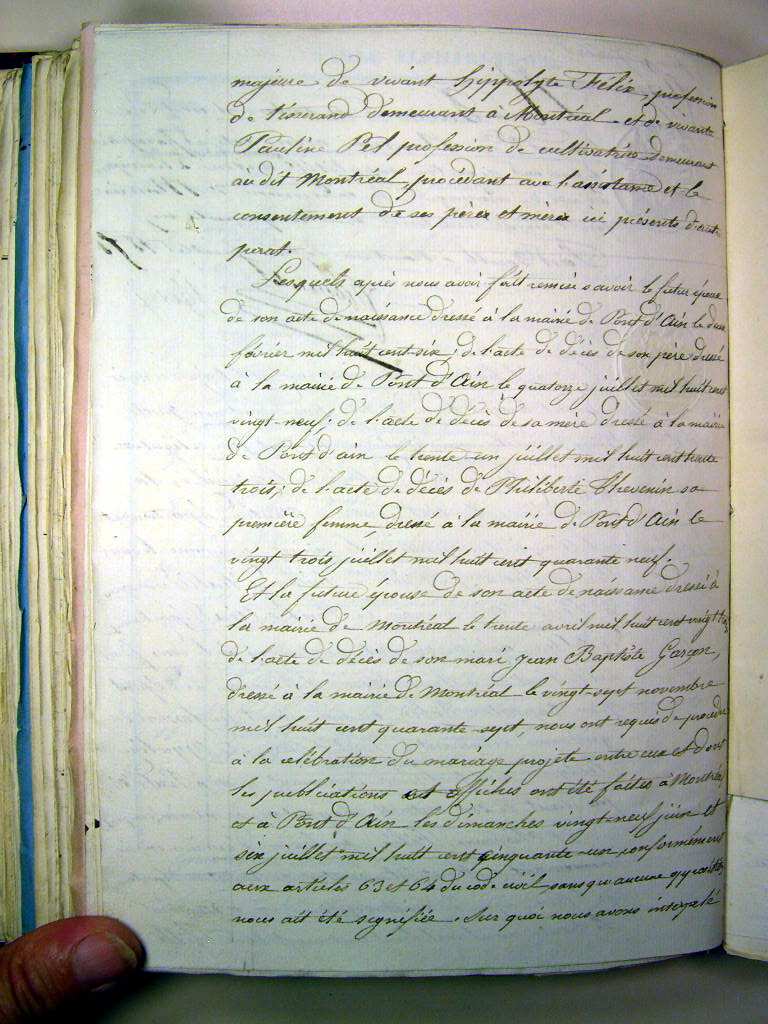 majeure de vivant hippolyte Félix, profession
de tisserand demeurant à Montréal et de vivante
Pauline Pel profession de cultivatrice demeurant
au dit Montréal, procédant avec l'assistance et le
consentement de ses père et mère ici présents d'autre
part.
Lesquels après nous avoir fait remise savoir le futur époux
de son acte de naissance dressé à la mairie de Pont d'Ain le deux
février mil huit cent six; de l'acte de décès de son père dressé
à la mairie de Pont d'Ain le quatorze juillet mil huit cent
vingt-neuf; de l'acte de décès de sa mère dressé à la mairie
de Pont d'ain le trente un juillet mil huit cent trente
trois; de l'acte de décès de Philiberte Thevenin sa
première femme, dressé à la mairie de Pont d'Ain le
vingt trois juillet mil huit cent quarante neuf.
Et la future épouse de son acte de naissance dressé à
la mairie de Montréal le trente avril mil huit cent vingt
de l'acte de décès de son mari Jean Baptiste Garçon,
dressé à la mairie de Montréal le vingt-sept novembre
mil huit cent quarante-sept, nous ont requis de procéder
à la célébration du mariage projeté entre eux et dont
les publications et affiches ont été faites à Montréal
et à Pont d'Ain les dimanches vingt-neuf juin et
six juillet mil huit cent cinquante-un, conformément
aux articles 63 et 64 du code civil, sans qu'aucune opposition
nous ait été signifiée. Sur quoi nous avons interpelé